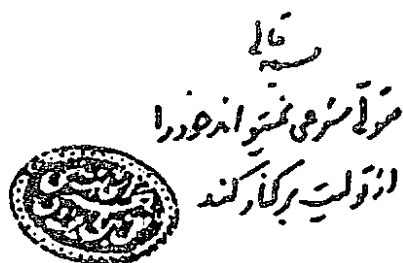 تعالی
متولی شرعی نمیتواند خود را
از تولیت برکنار کند